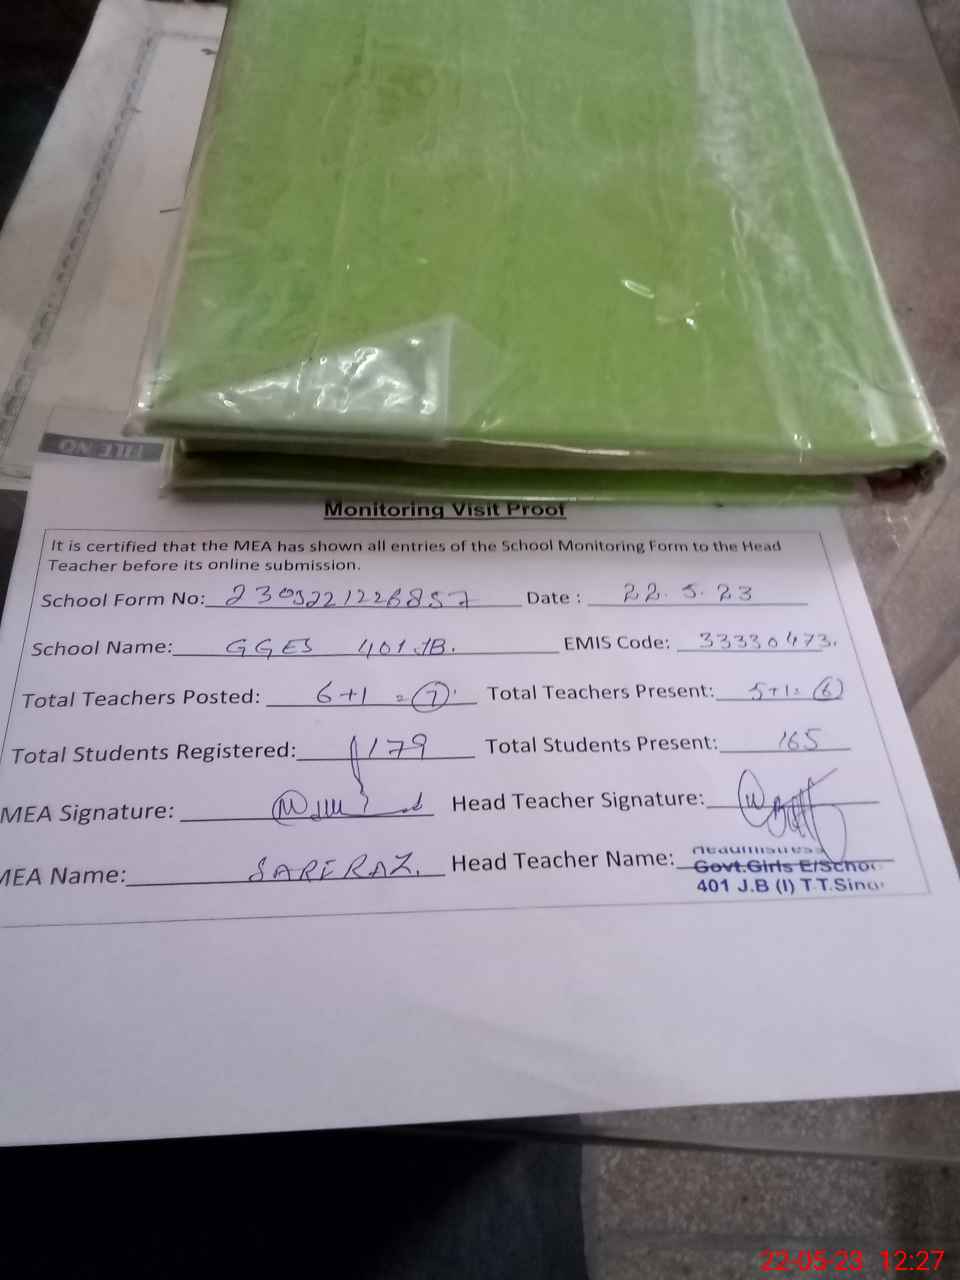 FILE NO
Monitoring Visit Proof
It is certified that the MEA has shown all entries of the School Monitoring Form to the Head
Teacher before its online submission.
School Form No: 2305221226857 Date : 22. 5. 23
School Name: GGES 401 JB. EMIS Code: 33330473.
Total Teachers Posted: 6+1 = 7 Total Teachers Present: 5+1= 6
Total Students Registered: 179 Total Students Present: 165
MEA Signature: Head Teacher Signature:
MEA Name: SARFRAZ. Head Teacher Name:
Headmistress
Govt.Girls E/School
401 J.B (I) T.T.Singh
22-05-23 12:27